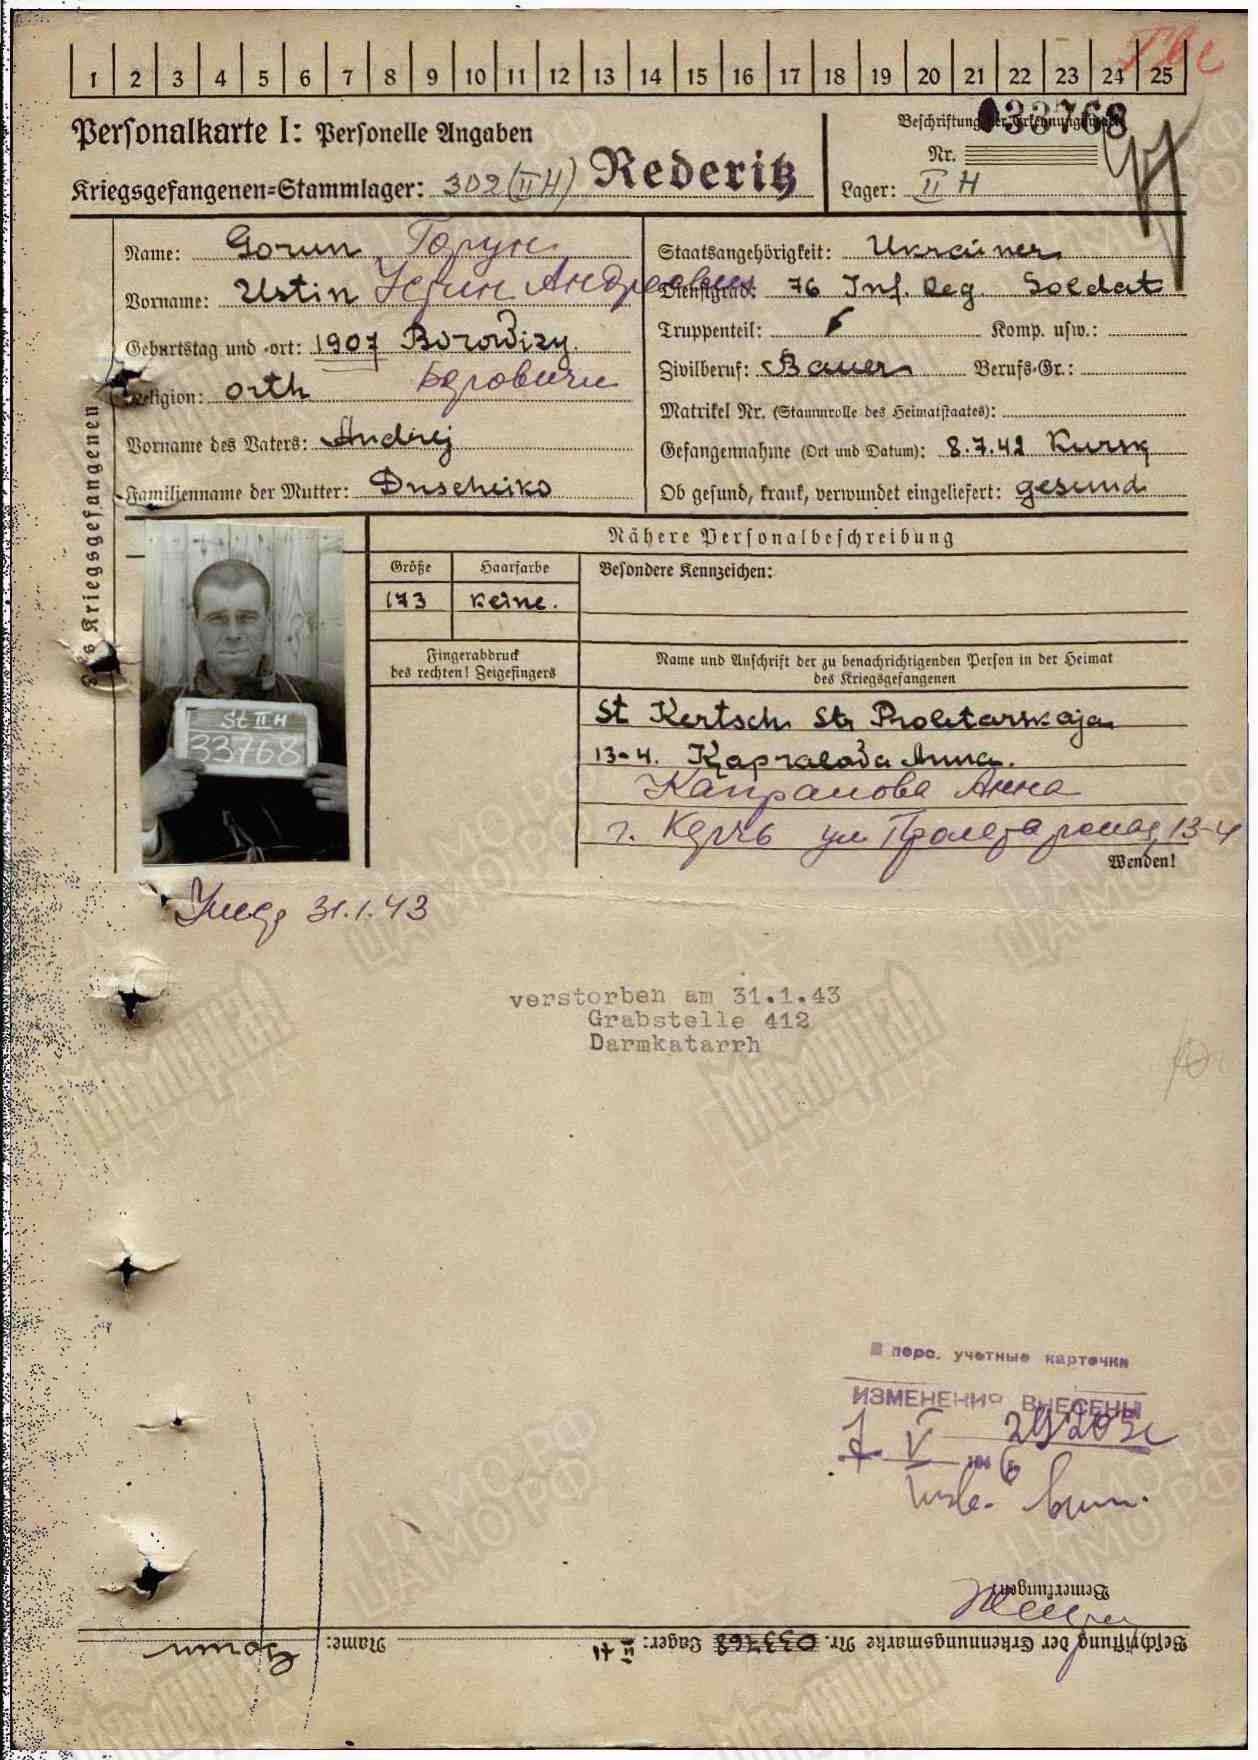 1 2 3 4 5 6 7 8 9 10 11 12 13 14 15 16 17 18 19 20 21 22 23 24 25
Personalkarte I: Personelle Angaben
Kriegsgefangenen=Stammlager: 302 (II H) Rederitz
Beschriftung der Erkennungsmarke
033768
Nr.
Lager: II H
des Kriegsgefangenen
Name: Gorun Горун
Vorname: Ustin Устин Андреевич
Geburtstag und =ort: 1907 Borowizy.
Religion: orth Боровичи
Vorname des Vaters: Andrej
Familienname der Mutter: Duscheiko
Staatsangehörigkeit: Ukrainer
Dienstgrad: 76 Inf. Reg. Soldat
Truppenteil: Komp. usw.:
Zivilberuf: Bauer Berufs=Gr.:
Matrikel Nr. (Stammrolle des Heimatstaates):
Gefangennahme (Ort und Datum): 8.7.42 Kursk
Ob gesund, krank, verwundet eingeliefert: gesund
Nähere Personalbeschreibung
Größe Haarfarbe Besondere Kennzeichen:
173 keine.
Fingerabdruck
des rechten! Zeigefingers
Name und Anschrift der zu benachrichtigenden Person in der Heimat
des Kriegsgefangenen
St II H
33768
St Kertsch Str Proletarskaja
13-4. Kapralova Anna.
Капралова Анна
г. Керчь ул Пролетарская, 13-4
Wenden!
31.1.43
verstorben am 31.1.43
Grabstelle 412
Darmkatarrh
В перс. учетные карточки
ИЗМЕНЕНИЯ ВНЕСЕНЫ
Bemerkungen:
Beschriftung der Erkennungsmarke Nr. 033768 Lager: II H Name: Gorun
ЦАМО РФ
Мемориал
НАРОДА